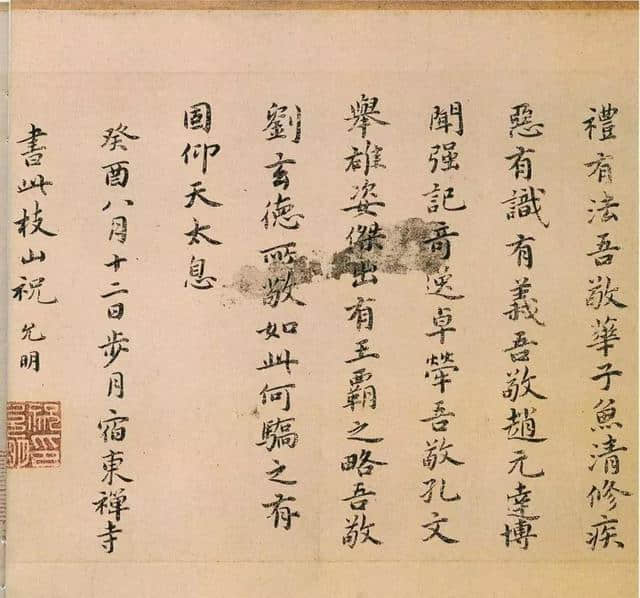 禮有法吾敬華子魚清修疾
惡有識有義吾敬趙元達博
聞强記奇逸卓犖吾敬孔文
舉雄姿傑出有王霸之略吾敬
劉玄德所敬如此何驕之有
固仰天太息
癸酉八月十二日步月宿東禪寺
書此枝山祝允明